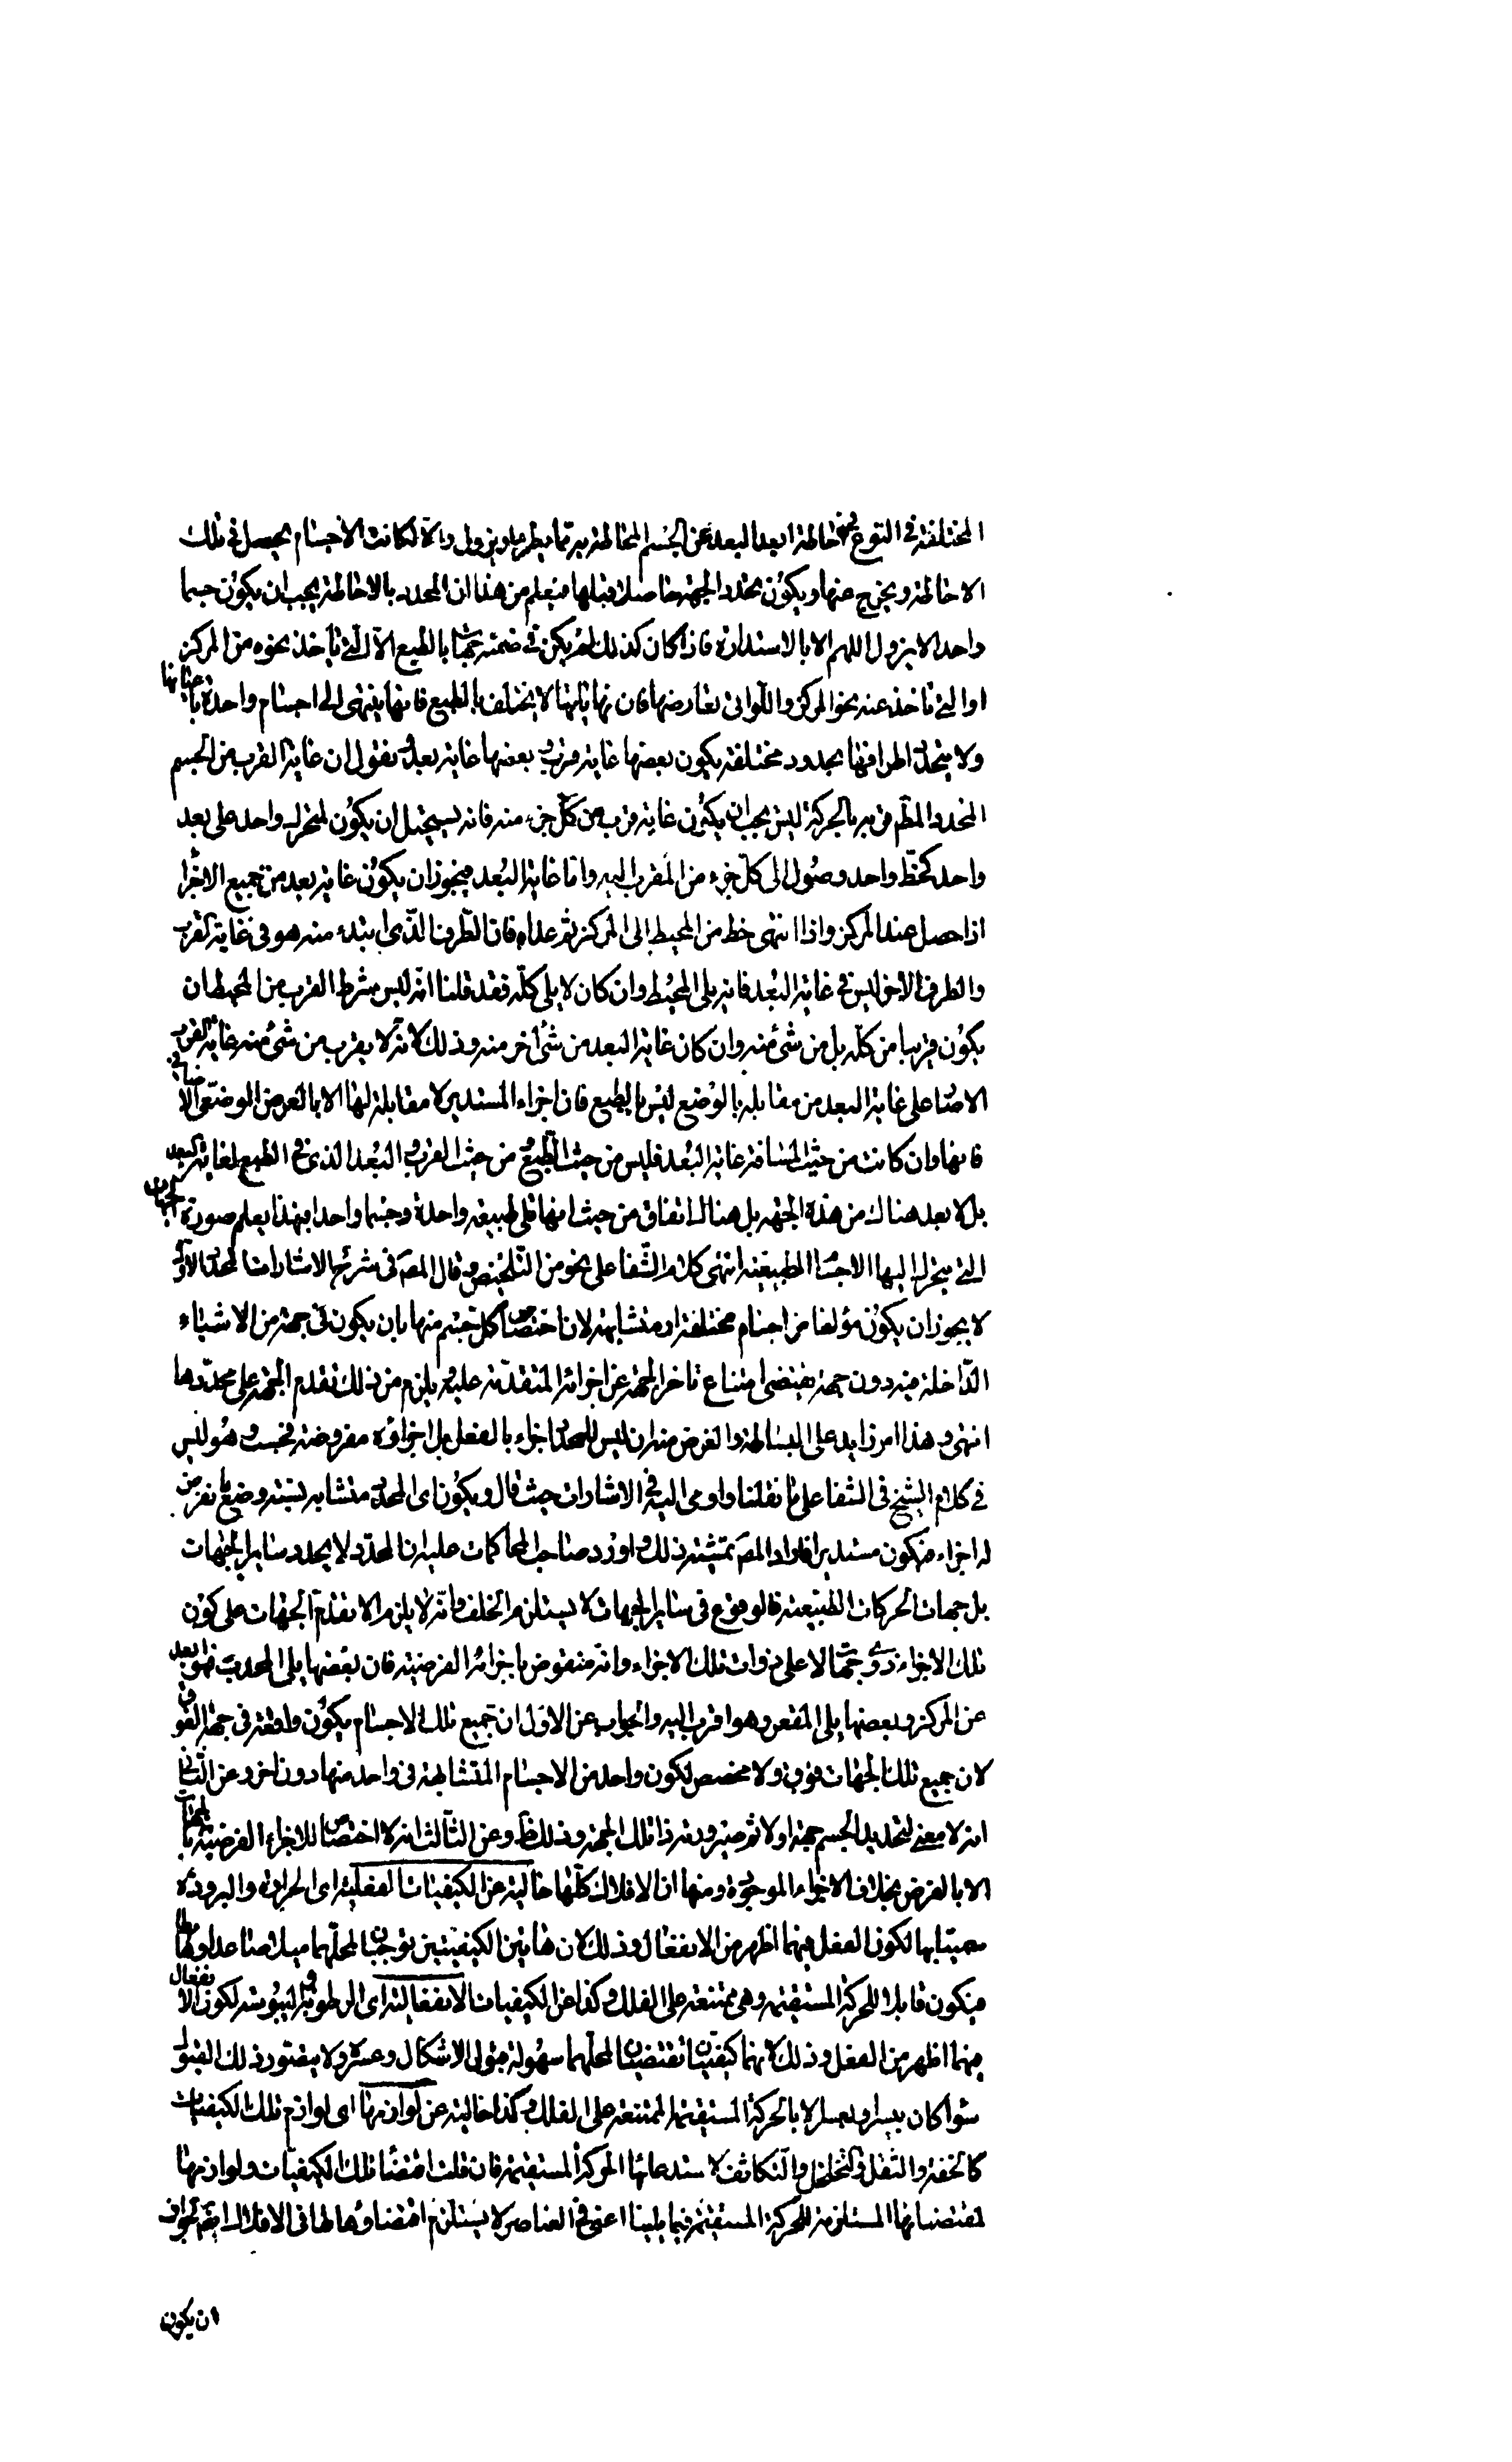 المختلفة في النوع فاحاطة ابعد البعد عن الجسم المحاطة به مما يطرء و يزول والا لكانت الاجسام يحصل في تلك
الاحاطة و يخرج عنها و يكون تحدد الجهة حاصلا قبلها فيعلم من هذا ان المحدد بالاحاطة يجب ان يكون جسما
واحدا لا يزول اللهم الا بالاستدارة فاذا كان كذلك لم يكن في ضمنه جهات بالطبع الا التي تاخذ نحوه من المركز
او التي تاخذ عنه نحو المركز واللواتي تعارضها فان نهاياتها لا يختلف بالطبع فانها ينتهي الى اجسام واحدة باعيانها
ولا يتحدد اطرافها بحدود مختلفة يكون بعضها غاية قرب و بعضها غاية بعد و نقول ان غاية القرب من الجسم
المحدد الملتزم قربه بالحركة ليس يجب ان يكون غاية قرب من كل جزء منه فانه يستحيل ان يكون لمتحرك واحد على بعد
واحد كخط واحد وصول الى كل جزء من المقرب اليه واما غاية البعد فيجوز ان يكون غاية بعد من جميع الاجزاء
اذا حصل عند المركز واذا انتهى خط من المحيط الى المركز ثم عداه فان الطرف الذي ابتدء منه هو في غاية القرب
والطرف الاخر ليس في غاية البعد فانه يلي المحيط وان كان لا يلي كله فقد قلنا انه ليس شرط القرب من المحيط ان
يكون قريبا من كله بل من شئ منه وان كان غاية البعد من شئ اخر منه وذلك لانه لا يقرب من شئ منه غاية القرب
الا صار على غاية البعد من مقابله بالوضع ليس بالطبع فان اجزاء المستدير لا مقابلة لها الا بالعرض الوضعي الاضافي
فانها وان كانت من حيث المسافة غاية البعد فليس من حيث الطبع و من حيث القرب و البعد الذي في الطبع لغاية البعد
بل لا بعد هناك من هذه الجهة بل هناك اتفاق من حيث انها تلي طبيعة واحدة وجسما واحدا فبهذا يعلم صورة الجهات
التي يتحرك اليها الاجسام الطبيعية انتهى كلام الشفا على نحو من التلخيص و قال المصـ في شرح الاشارات المحدد الاول
لا يجوز ان يكون مؤلفا من اجسام مختلفة او متشابهة لان اختصاص كل جسم منها بان يكون في جهة من الاشياء
الداخلة فيه دون جهة يقتضي امتناع تاخر الجهة عن اجزائه المتقدمة عليه و يلزم من ذلك تقدم الجهة على محددها
انتهى و هذا امر زايد على البساطة والغرض منه ان ليس للمحدد اجزاء بالفعل بل اجزاؤه مفروضة فحسب و هو ليس
في كلام الشيخ في الشفا على ما نقلنا و اومى اليه في الاشارات حيث قال و يكون اى المحدد متشابه نسبته وضع ما يفرض
له اجزاء فيكون مستديرا فاراد المصـ تمشيته ذلك و اورد صاحب المحاكمات عليه ان المحدد لا يحدد ساير الجهات
بل جهات الحركات الطبيعية فالوقوع في ساير الجهات لا يستلزم الخلف وانه لا يلزم الا تقدم الجهات على كون
تلك الاجزاء ذوى جهات لا على ذوات تلك الاجزاء وانه منقوض باجزائه الفرضية فان بعضها يلي المحدب فهو ابعد
عن المركز و بعضها يلي المقعر و هو اقرب اليه والجواب عن الاول ان جميع تلك الاجسام يكون واقعة في جهة الفوق
لان جميع تلك الجهات فوق ولا مخصص لكون واحد من الاجسام المتشابهة في واحد منها دون اخر و عن الثاني
انه لا معنى لتحديد الجسم جهة اولا ثم صيرورته ذا تلك الجهة و ذلك ظ و عن الثالث انه لا اختصاص للاجزاء الفرضية بالجهات
الا بالفرض بخلاف الاجزاء الموجودة و منها ان الافلاك كلها خالية عن الكيفيات الفعلية اى الحرارة والبرودة
سميتا بها لكون الفعل فيهما اظهر من الانفعال و ذلك لان هاتين الكيفيتين توجبان لمحلهما ميلا صاعدا و هابطا
فيكون قابلا للحركة المستقيمة وهي ممتنعة على الفلك و كذا عن الكيفيات الانفعالية اى الرطوبة و اليبوسة لكون الانفعال
فيهما اظهر من الفعل و ذلك لانهما كيفيتان تقتضيان لمحلهما سهولة قبول الاشكال و عسره ولا يتصور ذلك القبول
سواء كان بيسر او بعسر الا بالحركة المستقيمة الممتنعة على الفلك و كذا خالية عن لوازمها اى لوازم تلك الكيفيات
كالخفة والثقل والتخلخل والتكاثف لاستدعائها الحركة المستقيمة فان قلت اقتضاء تلك الكيفيات و لوازمها
لمقتضياتها المستلزمة للحركة المستقيمة فيما يلينا اعني في العناصر لا يستلزم اقتضاؤها لها في الافلاك ايضا لجواز
ان يكون